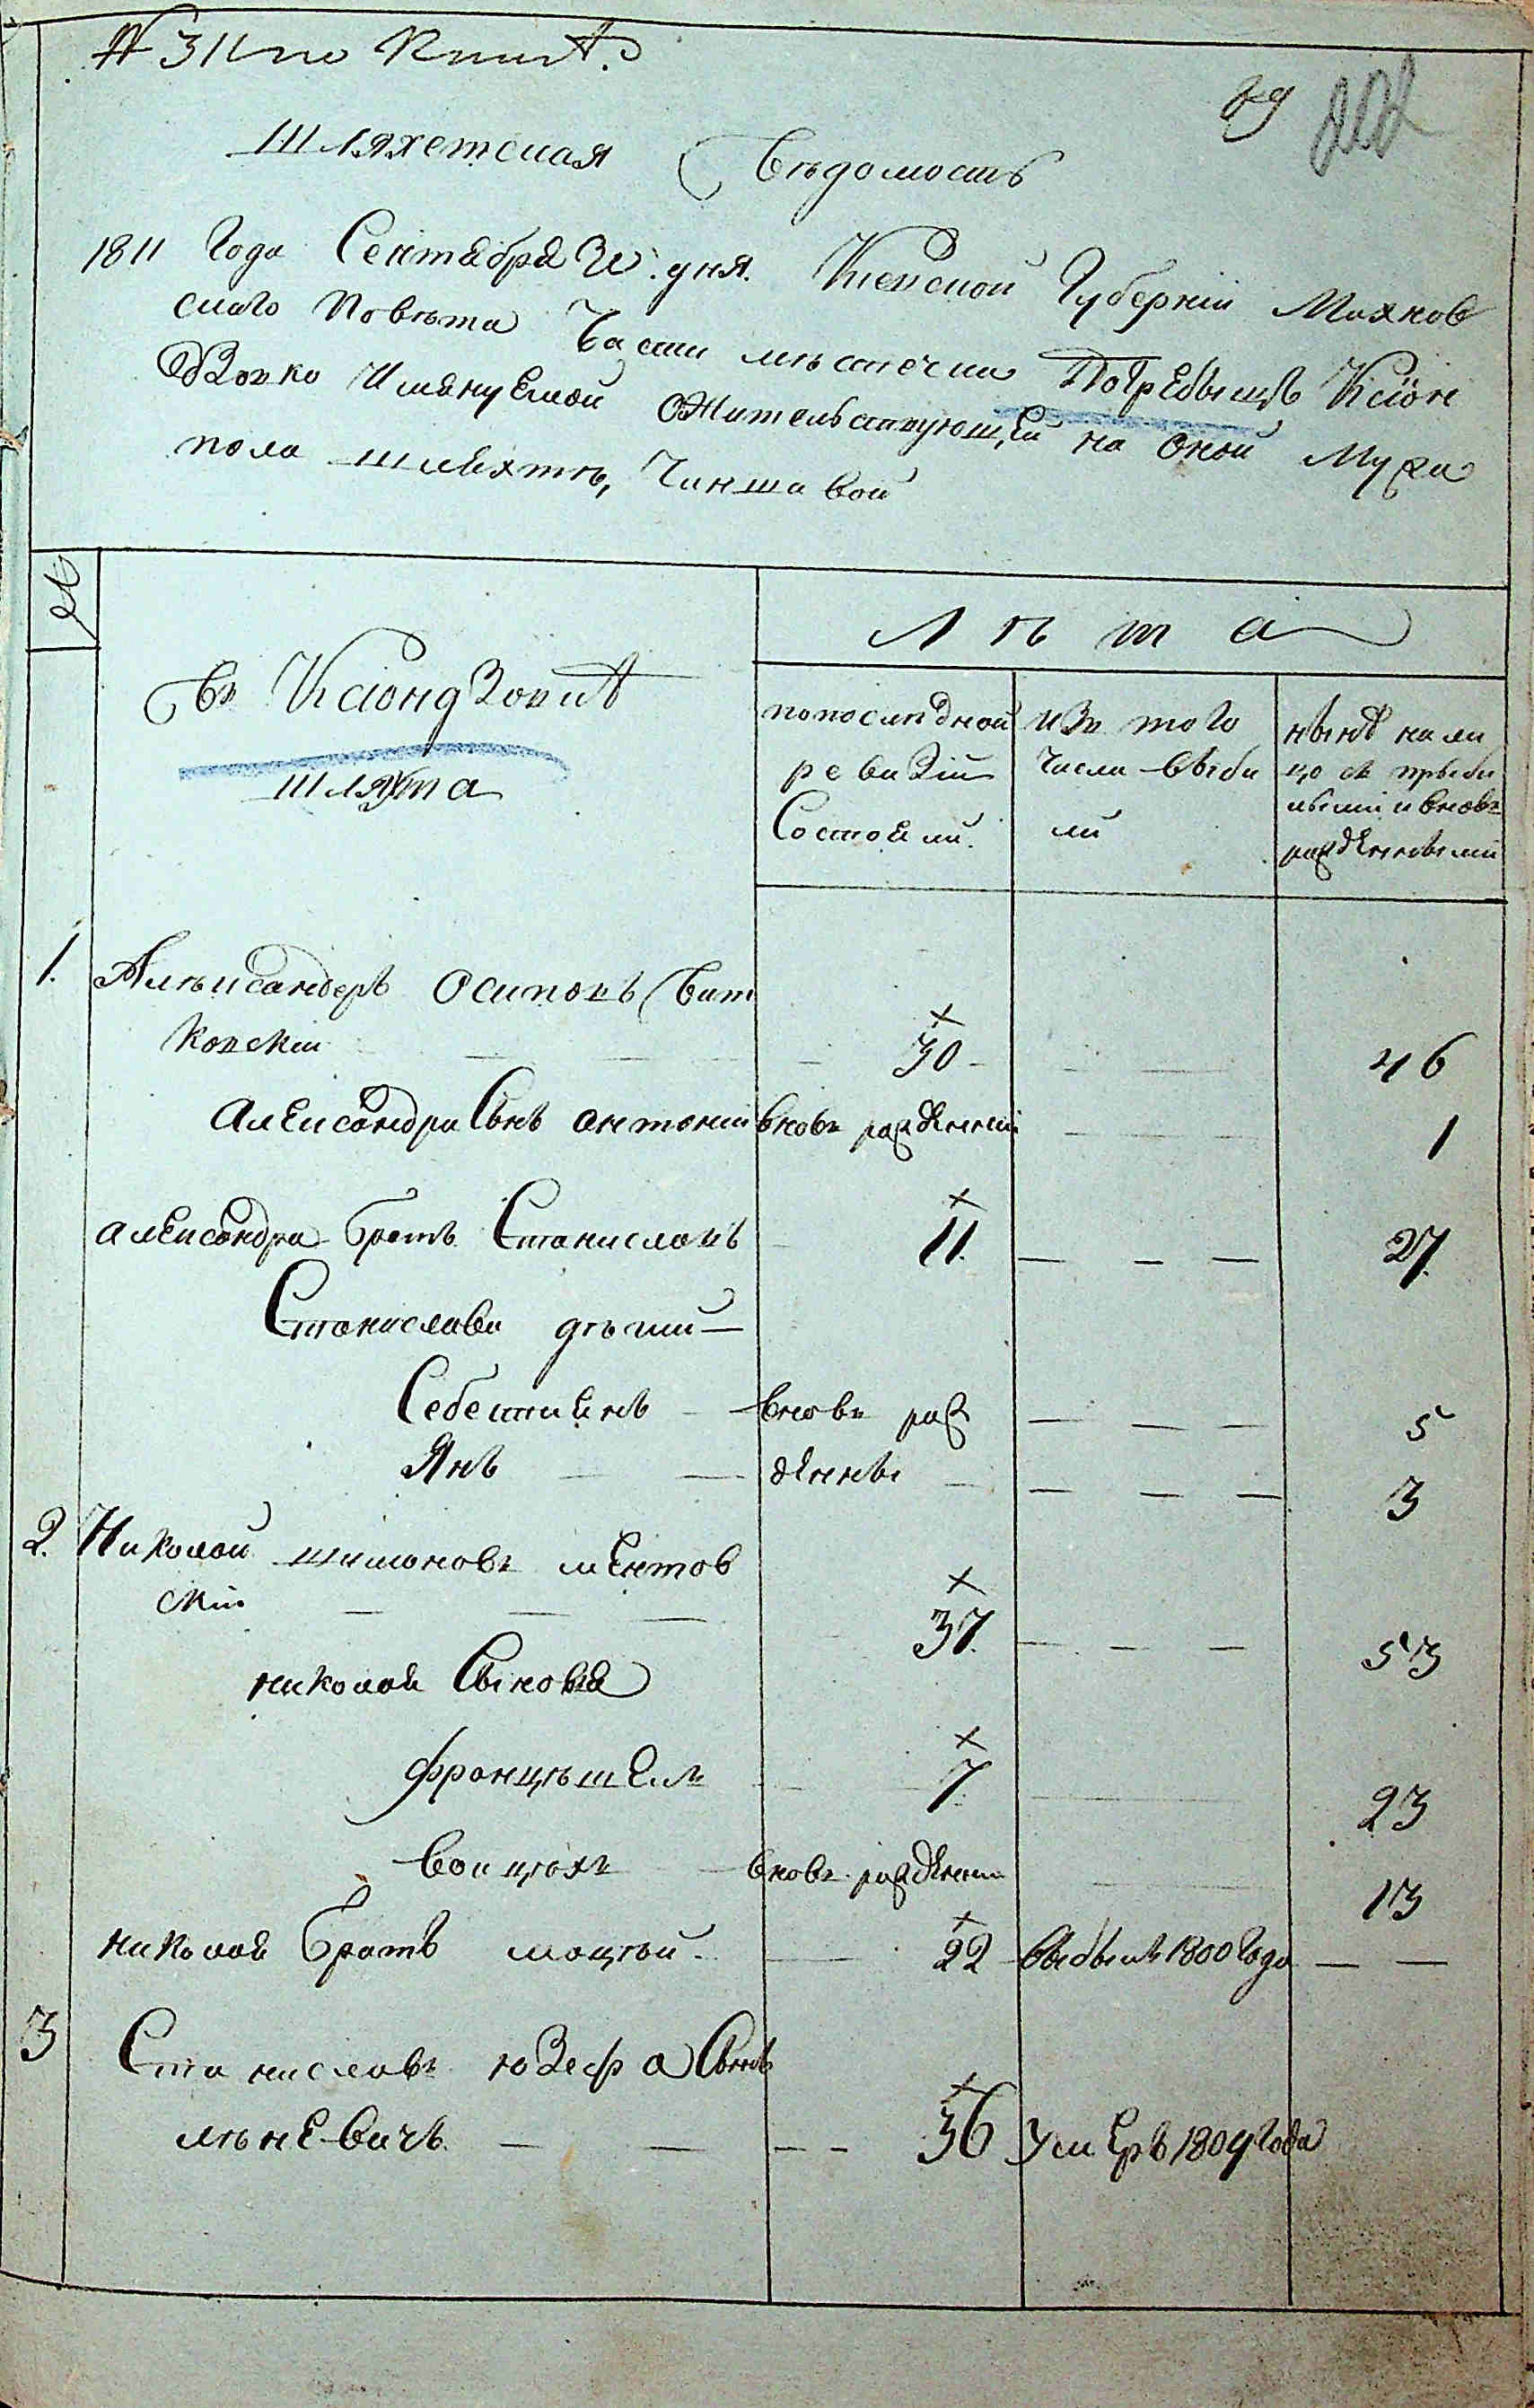 № 311 по Книгѣ.
89
Шляхетская Вѣдомость
1811 Года Сентября дня. Киевской Губерніи Махнов
скаго Повѣта Части мѣстечки Погребыщъ Ксіон
дзовко Имянуемой Жительствующей на оной Муска
пола шляхтѣ, Чиншавой
№
Въ Ксіондзовкѣ
шляхта
Лѣта
попослѣдной ревизіи Состояли.
изъ того Числа выбыли
нынѣ налицо съ прыбылыми и вновь рожденными
1. Алѣксандеръ Осиповъ Вит
ковскій — — — 30 — — — 46
Александра Сынъ Антоній вновь рожденный — — 1
Александра братъ Станиславъ 11. — — — 27.
Станислава дѣти —
Себестиянъ — вновь рож — — — 5
Янъ — — денны — — — — 3
2. Николай Шимоновъ Лентов
скій — — — 37. — — — 53
Николая Сыновья
Францѣшекъ 7. — 23
Войцѣхъ — вновь рожденный — 13
Николая братъ Мацѣй — — 22 выбылъ 1800 Года — —
3 Станиславъ Юзефа Сынъ
Лѣневичъ. — — — — 36 Умеръ 1804 Года